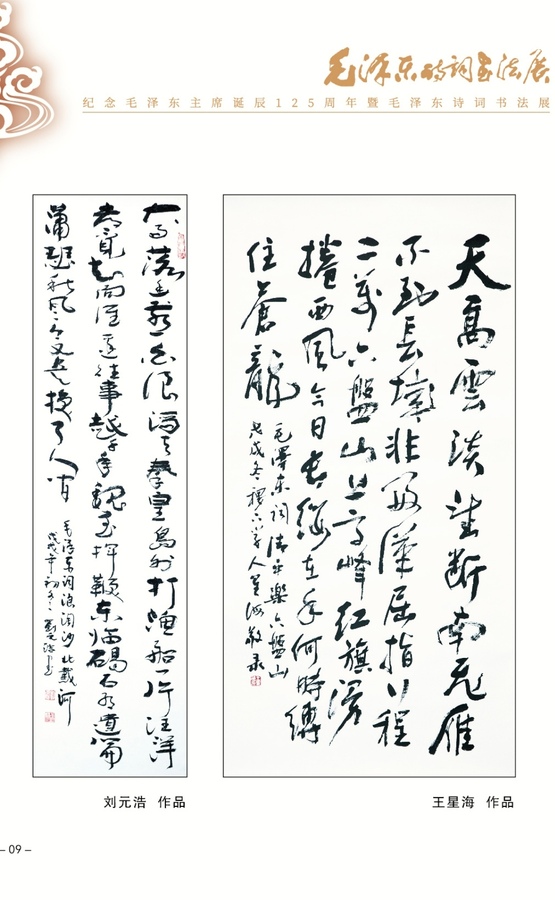 毛泽东诗词书法展
纪念毛泽东主席诞辰125周年暨毛泽东诗词书法展
大雨落幽燕白浪滔天秦皇島外打渔船一片汪洋
都不見知向谁边往事越千年魏武挥鞭东临碣石有遗篇
蕭瑟秋风今又是换了人间
毛泽东词浪淘沙北戴河
戊戌年初冬刘元浩书
刘元浩 作品
天高雲淡望断南飞雁
不到長城非好漢屈指行程
二萬六盤山上高峰红旗漫
捲西風今日長缨在手何時缚
住蒼龍
毛澤东词清平樂六盤山
戊戌冬人星海敬录
王星海 作品
– 09 –